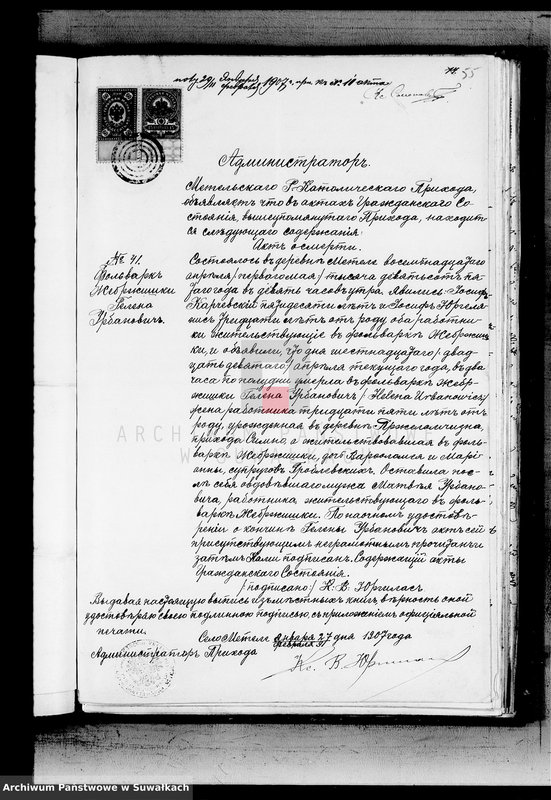 44. 55
1907 г. при № 11 акта
Администраторъ
Метельскаго Р. Католическаго Прихода,
объявляетъ что въ актахъ Гражданскаго Со-
стоянія, вышеупомянутаго Прихода, находит-
ся слѣдующаго содержанія:
Актъ о смерти.
№ 41.
Фольваркъ
Жебржишки
Гелена
Урбановичъ.
Состоялось въ деревнѣ Метеле восемнадцатаго
апрѣля / перваго мая / тысяча девятьсотъ пя-
таго года въ девять часовъ утра. Явились Іосифъ
Карчевскій пятидесяти лѣтъ и Іосифъ Юргеля-
нисъ тридцати лѣтъ отъ роду, оба работни-
ки жительствующіе въ фольваркѣ Жебржиш-
ки, и объявили, что дня шестнадцатаго / двад-
цать девятаго / апрѣля текущаго года, въ два
часа по полудни умерла въ фольваркѣ Жебр-
жишки Гелена Урбановичъ / Helena Urbanowicz /
жена работника тридцати пяти лѣтъ отъ
роду, урожденная въ деревнѣ
прихода Симно, а жительствовавшая въ фоль-
варкѣ Жебржишки, дочь Варѳоломея и Марі-
анны, супруговъ Гроблевскихъ. Оставила пос-
лѣ себя овдовѣвшаго мужа Матвѣя Урбано-
вича, работника, жительствующаго въ фоль-
варкѣ Жебржишки. По наочномъ удостовѣ-
реніи о кончинѣ Гелены Урбановичъ актъ сей
присутствующимъ неграмотнымъ прочитанъ и
затѣмъ Нами подписанъ. Содержащій акты
Гражданскаго Состоянія.
/ подписано / К. В. Юргиласъ
Выдавая настоящую выпись изъ мѣстныхъ книгъ, вѣрность оной
удостовѣряю своею подлинною подписью, съ приложеніемъ оффиціальной
печати.
Село Метеле января 27 дня 1907 года
февраля
Администраторъ Прихода
Кс. В. Юргилас
ARCH
Archiwum Państwowe w Suwałkach